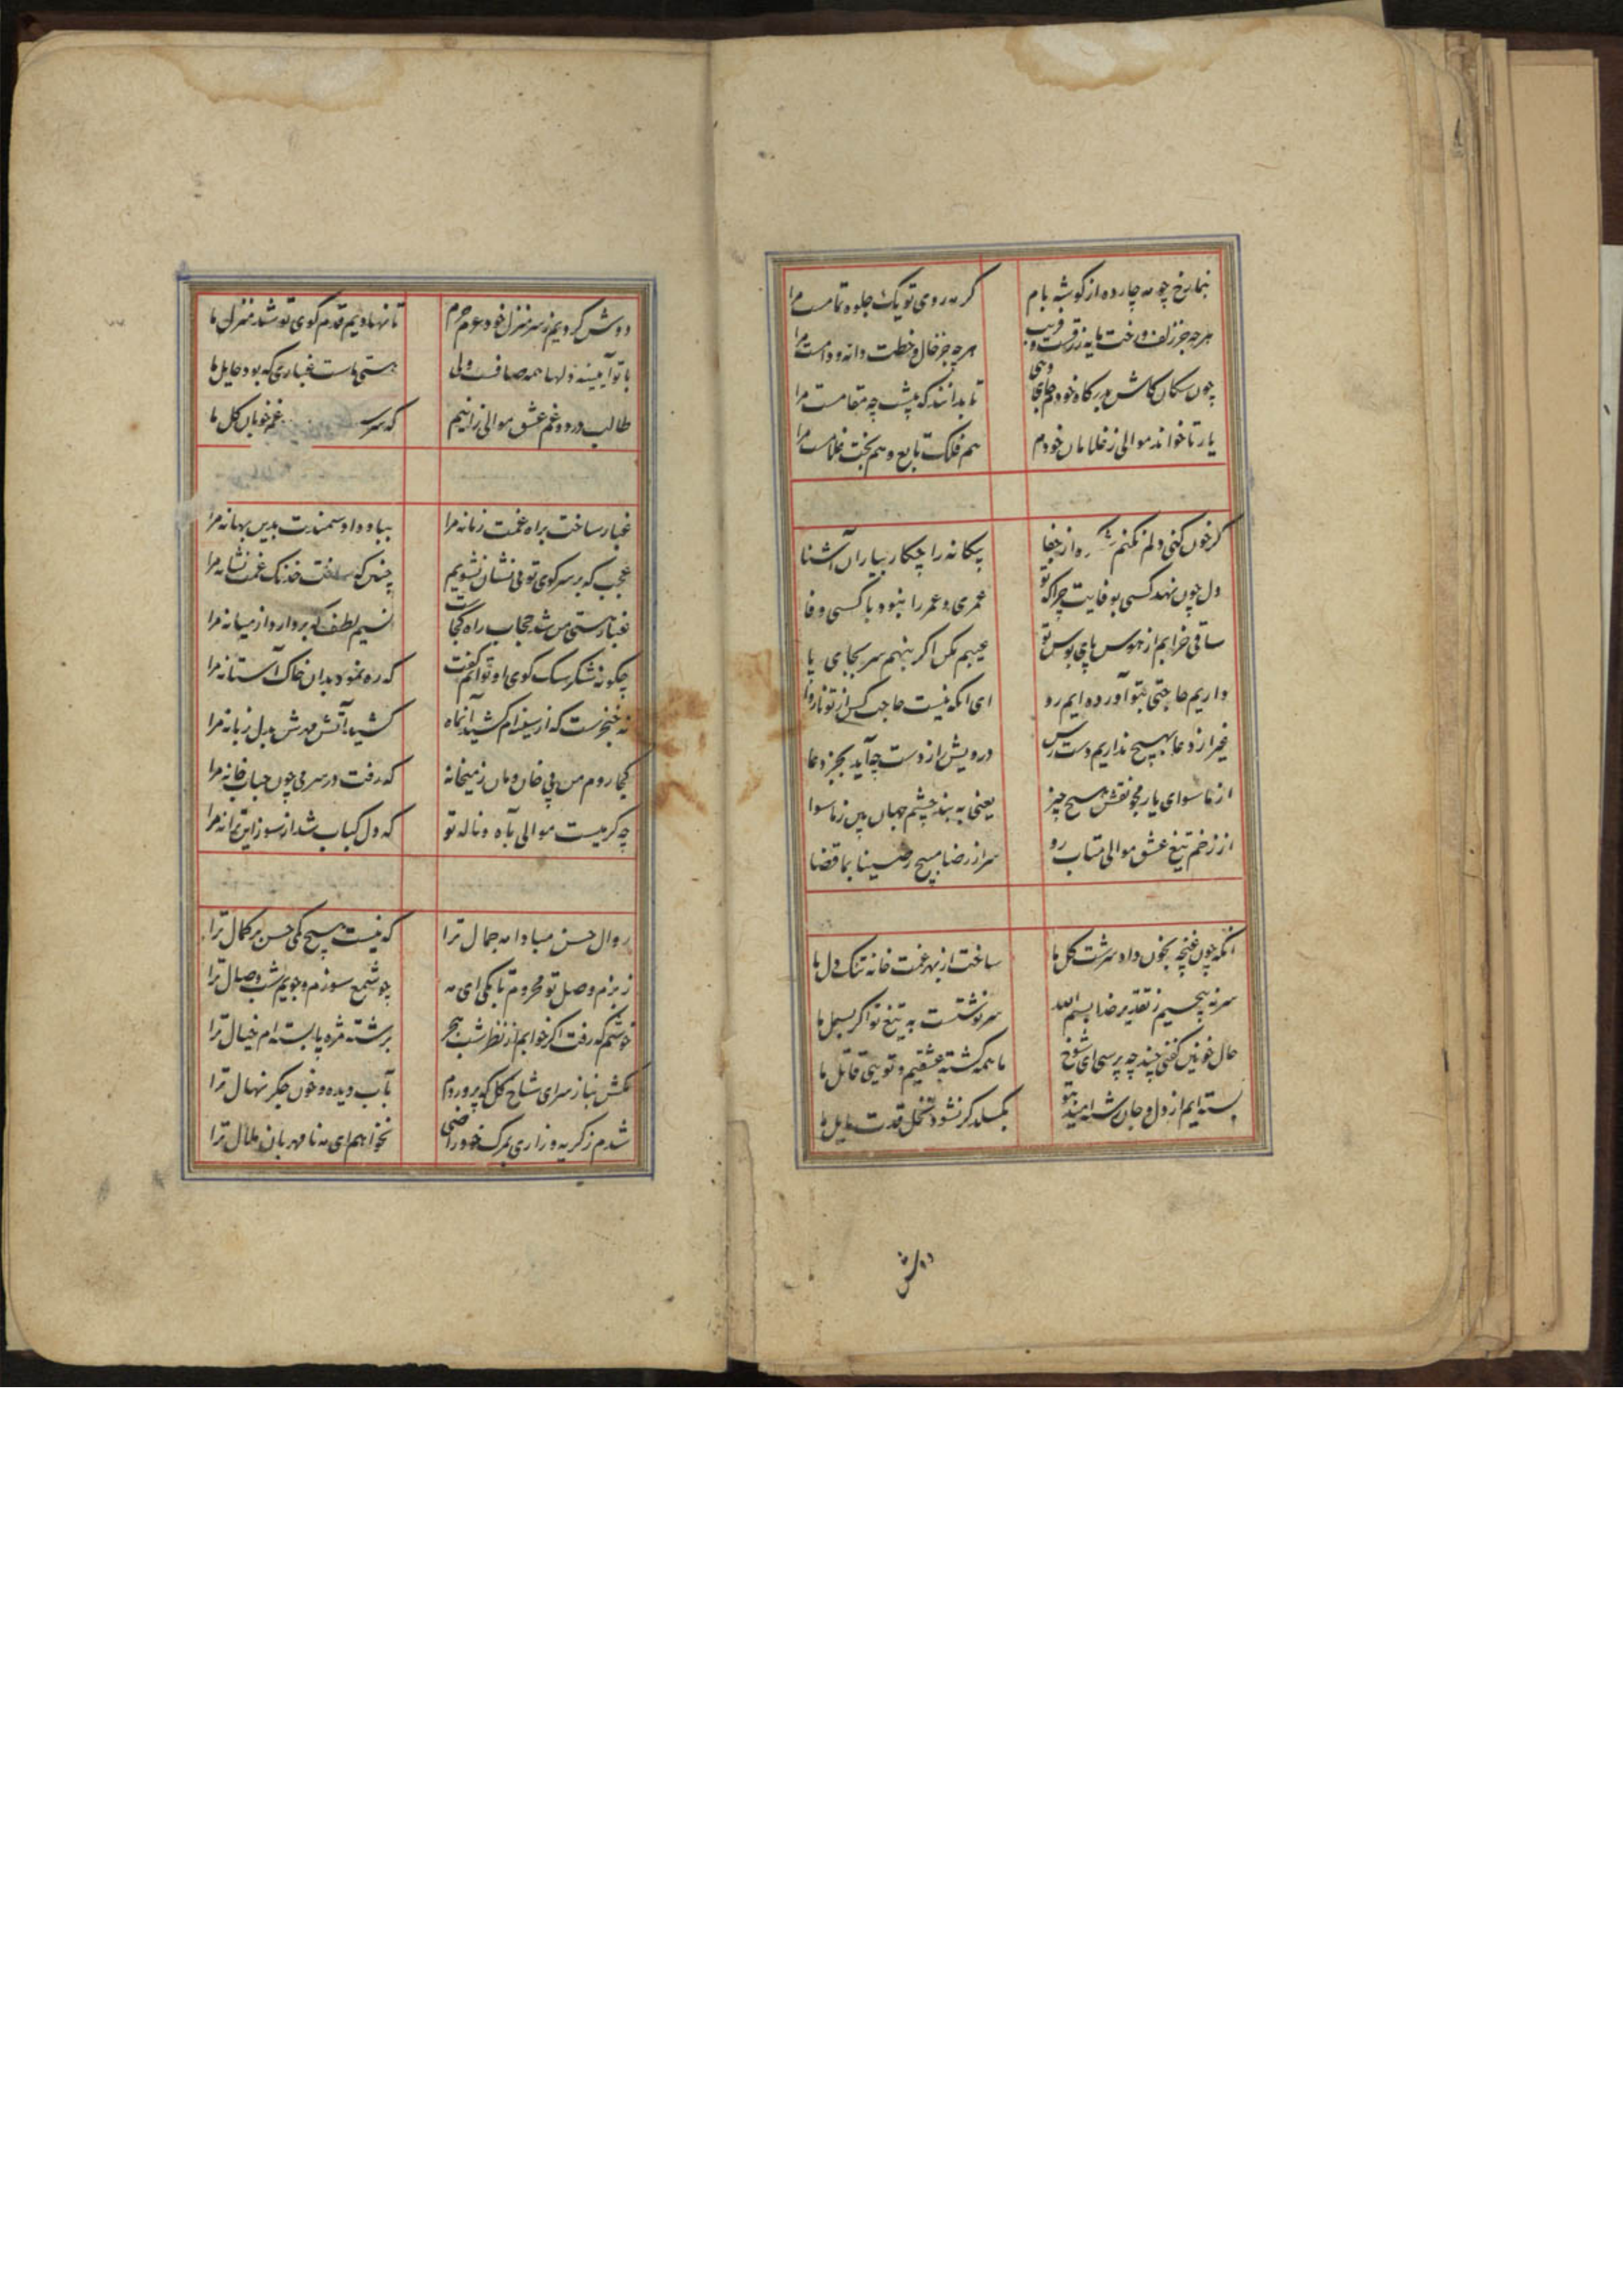 بنما رخ چو مه چارده از گوشه بام کز مه روی تو یک جلوه تمامست مرا
هر چه جز زلف و رخت مایه زرقست و فریب هر چه جز خال و خطت دانه و دامست مرا
چون سگان کاش بدرگاه خودم جای دهی تا بدانند که پیشت چه مقامست مرا
یار تا خواند موالی ز غلامان خودم هم فلک تابع و هم بخت غلامست مرا
گر خون کنی دلم نکنم از جفا بیکانه را چکار بیاران آشنا
دل چون نهد کسی بوفایت چرا که تو عمری و عمر را نبود با کسی وفا
ساقی خرابم از هوس پای بوس تو عیبم مکن اگر بنهم سر بجای پا
داریم حاجتی بتو آورده ایم رو ای انکه نیست حاجت کس از تو ناروا
غیر از دعا بهیچ نداریم دست رس درویش را ز دست چه آید بجز دعا
از ماسوای یار مجو نقش هیچ چیز یعنی به بند چشم جهان بین ز ماسوا
از زخم تیغ عشق موالی متاب رو سر از رضا مپیچ رضینا بما قضا
انکه چون غنچه بخون داد سرشت گل ما ساخت از بهر غمت خانه تنک دل ما
سر نه پیچیم ز تقدیر خدا بسم الله سرنوشتست به تیغ تو اگر بسمل ما
حال خونین کفنی چند چه پرسی ای شوخ ما همه کشته عشقیم و تویی قاتل ما
بسته ایم از دل و جان رشته امید بتو بکسلد گر نشود نخل قدت مایل ما
دوش
دوش کردیم ز سر منزل خود عزم حرم تا نهادیم قدم کوی تو شد منزل ما
با تو آیینه دلها همه صافست ولی هستی ماست غباری که بود حایل ما
طالب درد و غم عشق موالی زانیم که سر غم خوبان گل ما
غبار ساخت براه غمت زمانه مرا بباد داد سمندت بدین بهانه مرا
عجب که بر سر کوی تو بی نشان نشویم چنین که ساخت خدنک غمت نشانه مرا
غبار هستی من شد حجاب راه کجاست نسیم لطف که بردارد از میانه مرا
چکونه شکر سک کوی او توانم گفت که ره نمود بدان خاک آستانه مرا
نه خنجرست که از سینه ام کشید آنماه کشید آتش مهرش بدل زبانه مرا
کجا روم من بی خان و مان ز میخانه که رفت در سر می چون حباب خانه مرا
چه کرمیست موالی بآه و ناله تو که دل کباب شد از سوز این ترانه مرا
زوال حسن مبادا مه جمال ترا که نیست هیچ کمی حسن بر کمال ترا
ز بزم وصل تو محروم تا بکی ای مه چو شمع سوزم و جویم شب وصال ترا
خوشم که رفت اگر خوابم از نظر شب هجر برشته مژه پا بسته ام خیال ترا
مکش نیاز سر ای شاخ گل که پروردم بآب دیده و خون جگر نهال ترا
شدم ز گریه و زاری بمرک خود راضی نخواهم ای مه نامهربان ملال ترا